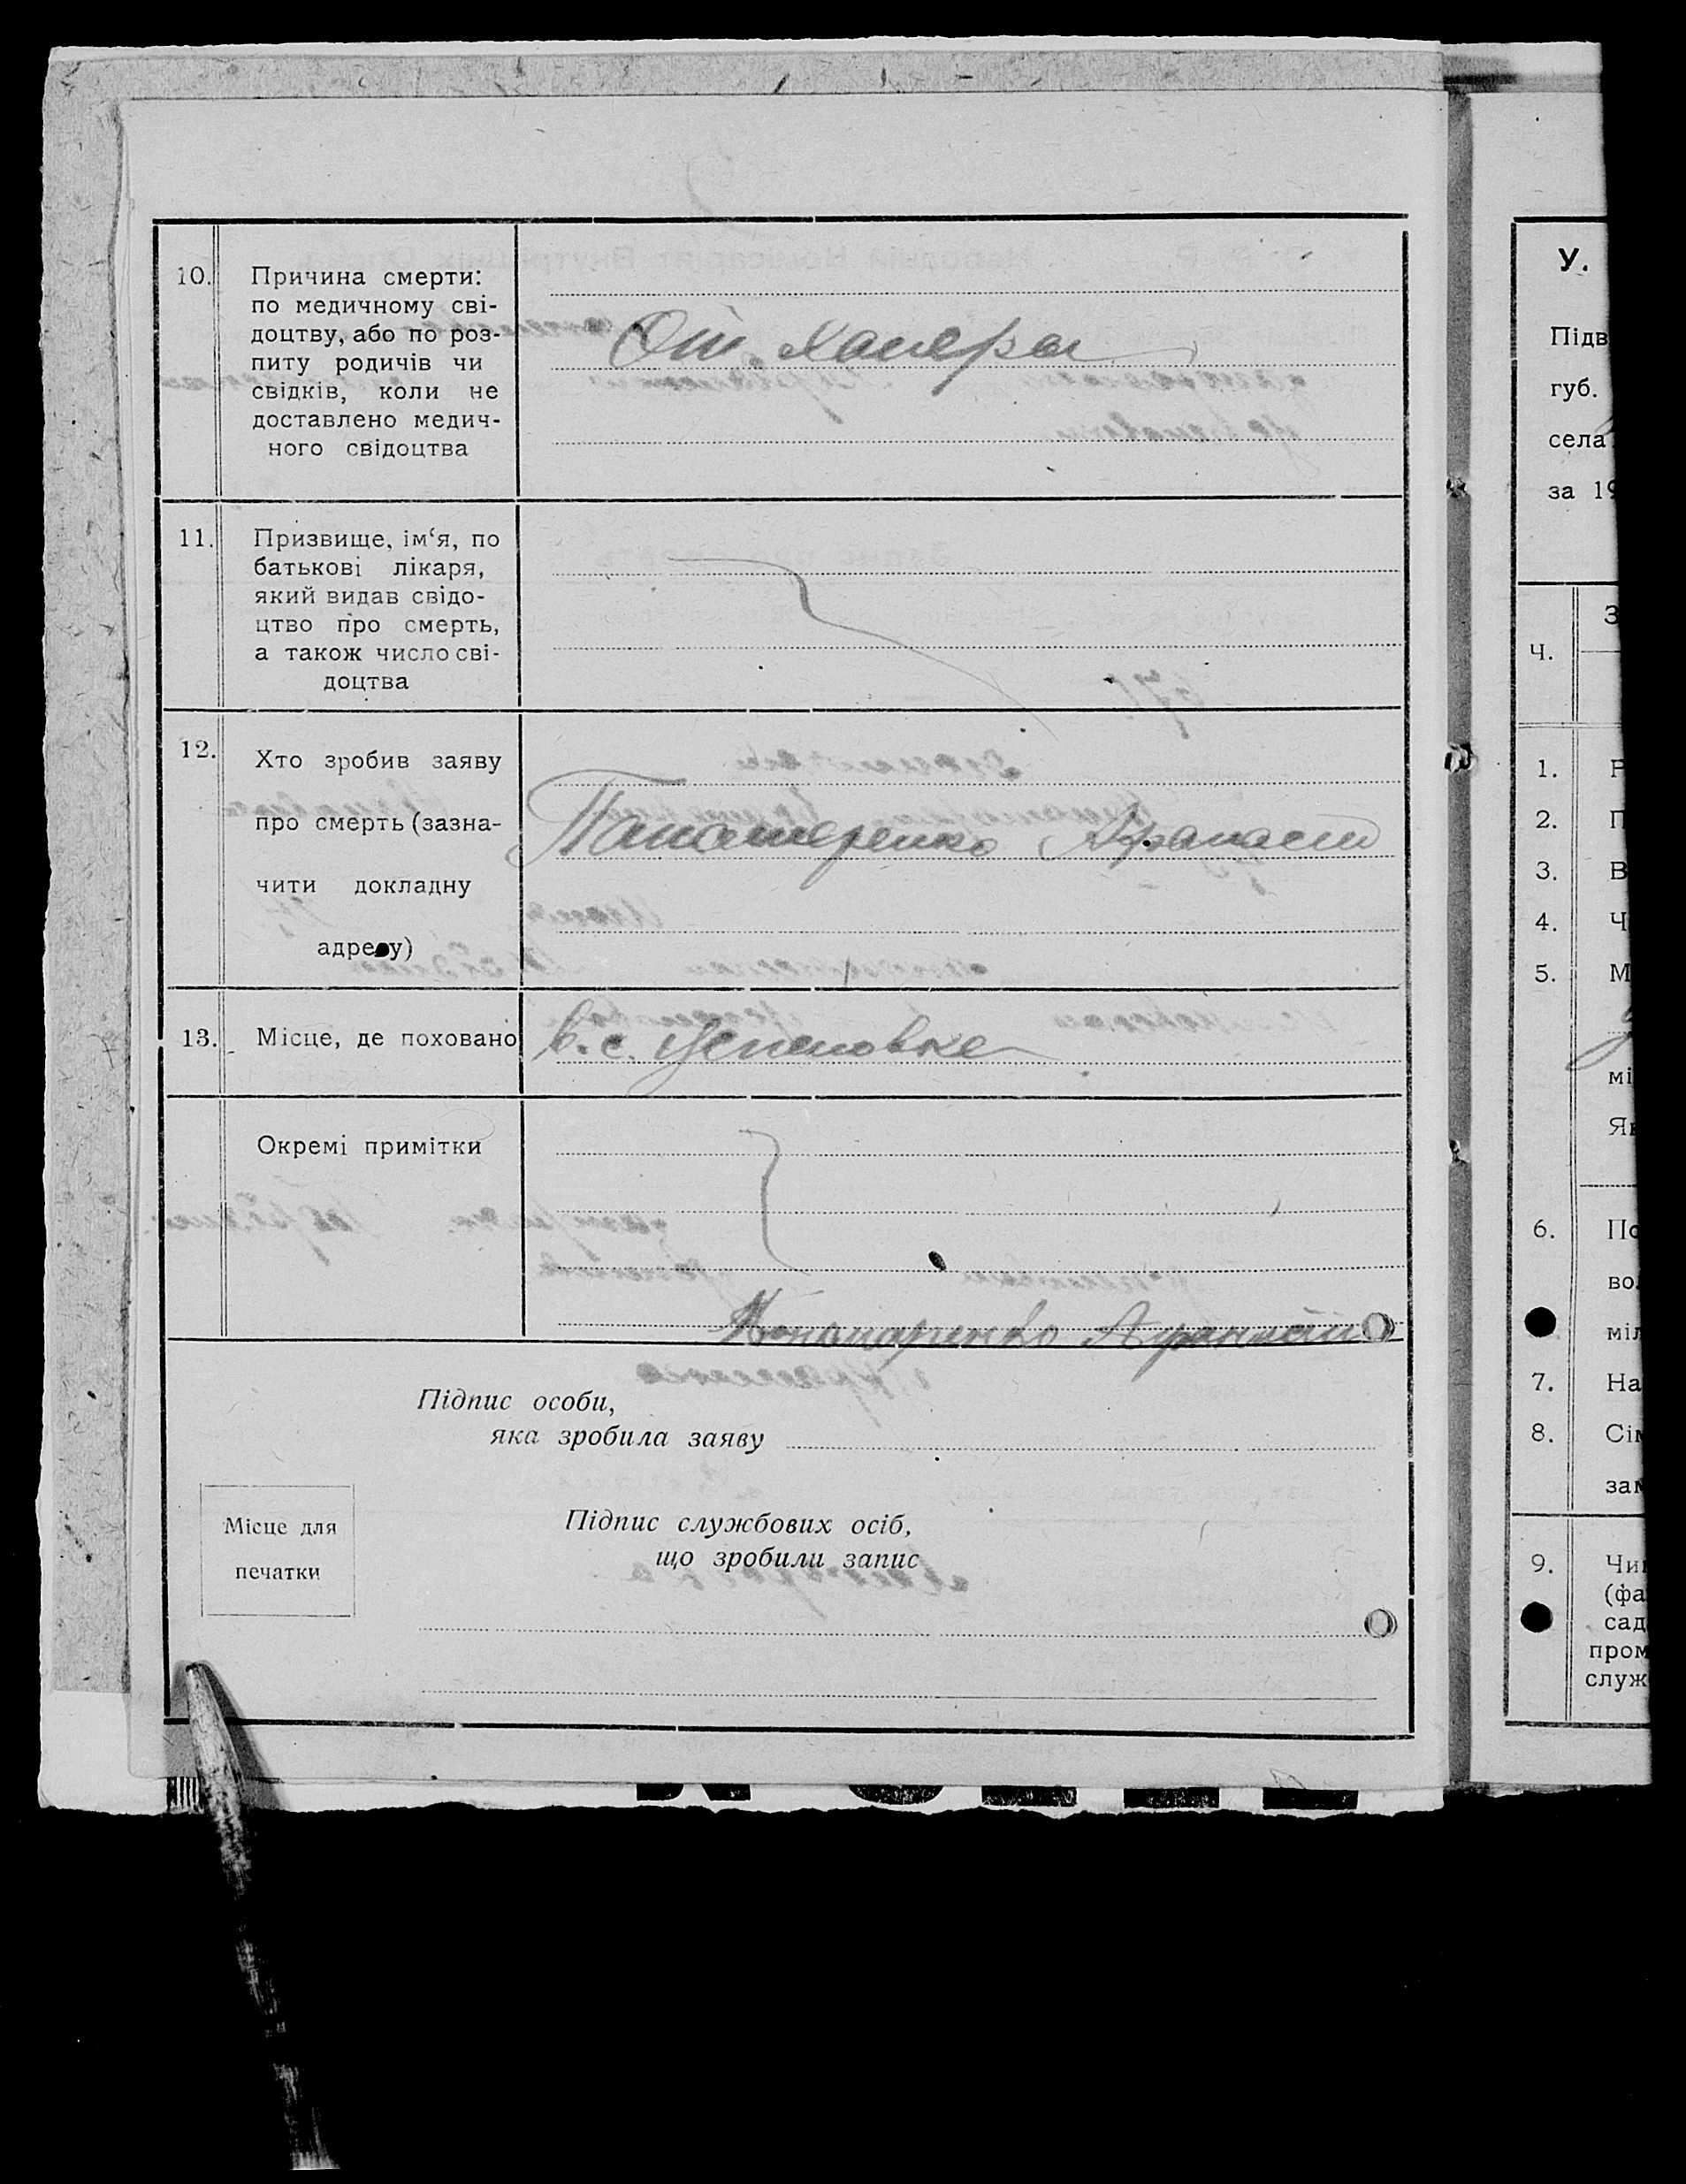 10. Причина смерти:
по медичному сві-
доцтву, або по роз-
питу родичів чи
свідків, коли не
доставлено медич-
ного свідоцтва
От холеры
11. Призвище, ім‘я, по
батькові лікаря,
який видав свідо-
цтво про смерть,
а також число сві-
доцтва
12. Хто зробив заяву
про смерть (зазна-
чити докладну
адресу)
Афанасий
13. Місце, де поховано
в. с.
Окремі примітки
Підпис особи,
яка зробила заяву
Місце для
печатки
Підпис службових осіб,
що зробили запис
У.
Підв
губ.
села
за 19
Ч.
З
1.
2. П
3. В
4. Ч
5. М
мі
Як
6. По
вол
міл
7. На
8. Сім
зам
9. Чи
(фа
сад
пром
служ